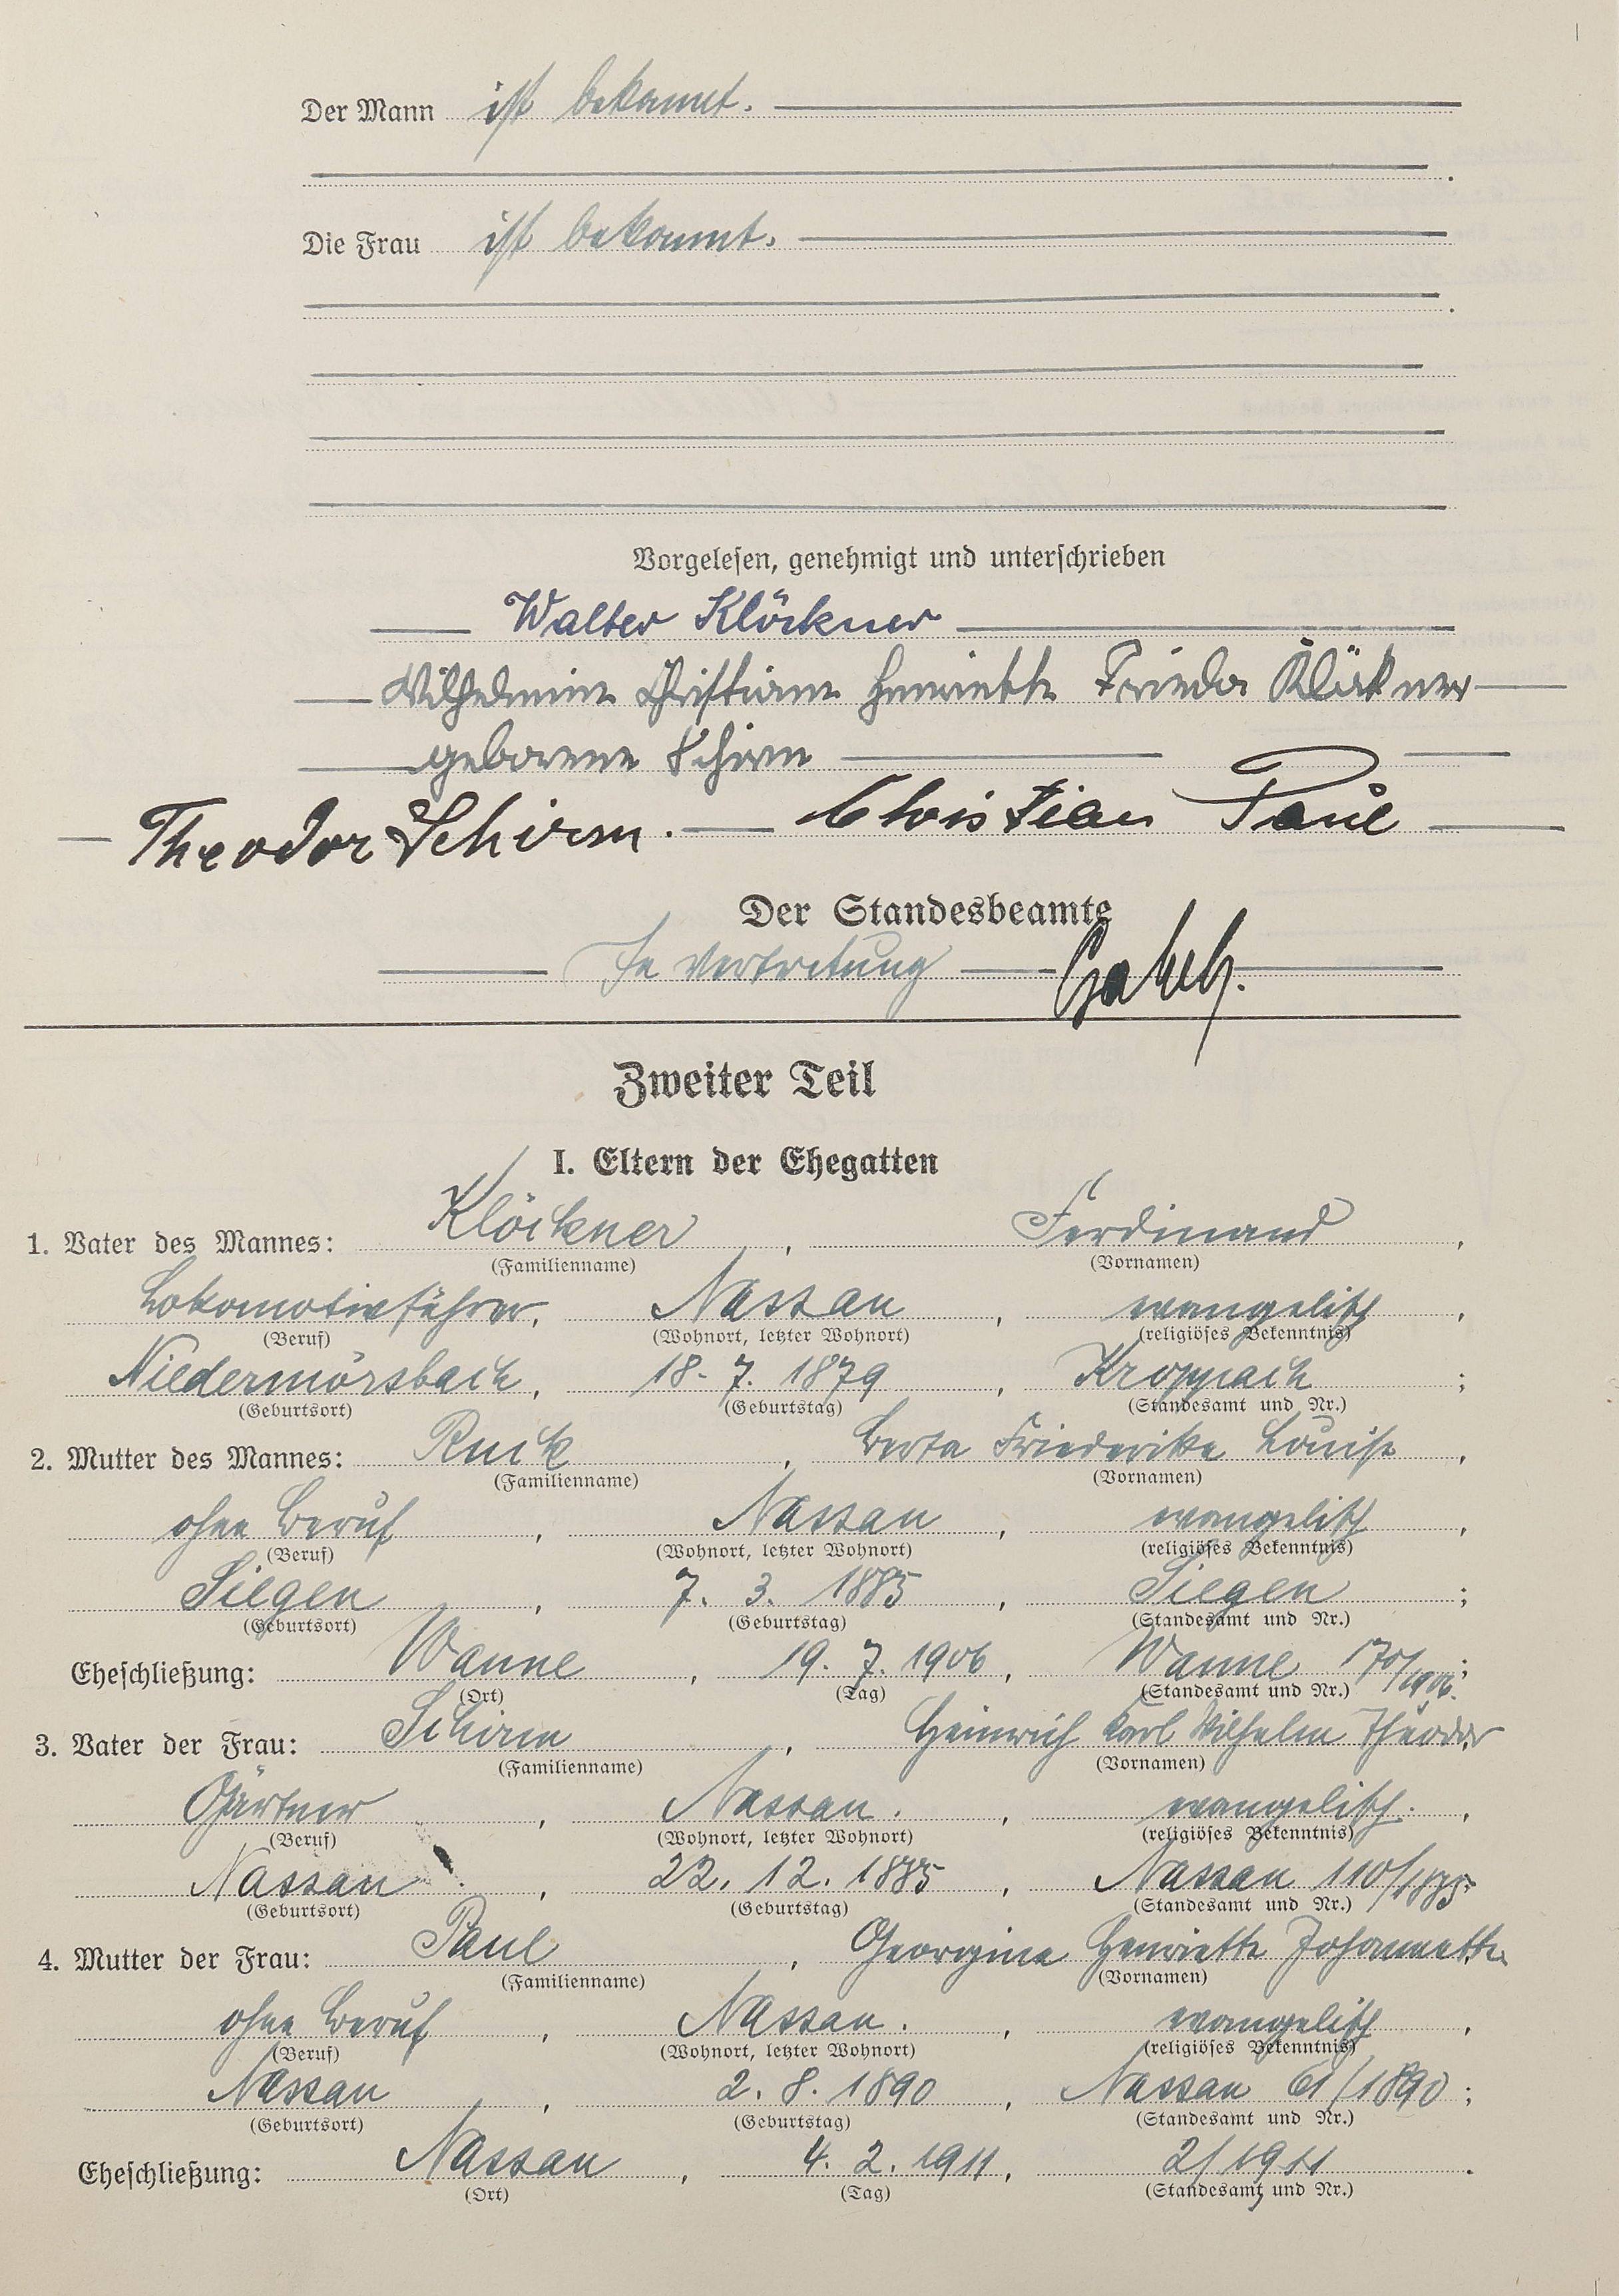 Der Mann ist bekannt.
Die Frau ist bekannt.
Vorgelesen, genehmigt und unterschrieben
Walter Klöckner
Wilhelmine Christiane Henriette Frieda Klöckner
geborene Schirm
Theodor Schirm. Christian Paul
Der Standesbeamte
In Vertretung
Zweiter Teil
I. Eltern der Ehegatten
1. Vater des Mannes: Klöckner, Ferdinand,
(Familienname) (Vornamen)
Lokomotivführer, Nassau, evangelisch,
(Beruf) (Wohnort, letzter Wohnort) (religiöses Bekenntnis)
Niedermörsbach, 18. 7. 1879, Kroppach;
(Geburtsort) (Geburtstag) (Standesamt und Nr.)
2. Mutter des Mannes: Ruck, Berta Friederike Louise,
(Familienname) (Vornamen)
ohne Beruf, Nassau, evangelisch,
(Beruf) (Wohnort, letzter Wohnort) (religiöses Bekenntnis)
Siegen, 7. 3. 1885, Siegen;
(Geburtsort) (Geburtstag) (Standesamt und Nr.)
Eheschließung: Wanne, 19. 7. 1906, Wanne 170/1906.;
(Ort) (Tag) (Standesamt und Nr.)
3. Vater der Frau: Schirm, Heinrich Karl Wilhelm Theodor,
(Familienname) (Vornamen)
Gärtner, Nassau., evangelisch.,
(Beruf) (Wohnort, letzter Wohnort) (religiöses Bekenntnis)
Nassau, 22. 12. 1885, Nassau 110/1885.
(Geburtsort) (Geburtstag) (Standesamt und Nr.)
4. Mutter der Frau: Paul, Georgine Henriette Johannette,
(Familienname) (Vornamen)
ohne Beruf, Nassau., evangelisch,
(Beruf) (Wohnort, letzter Wohnort) (religiöses Bekenntnis)
Nassau, 2. 8. 1890, Nassau 61/1890;
(Geburtsort) (Geburtstag) (Standesamt und Nr.)
Eheschließung: Nassau, 4. 2. 1911, 2/1911.
(Ort) (Tag) (Standesamt und Nr.)